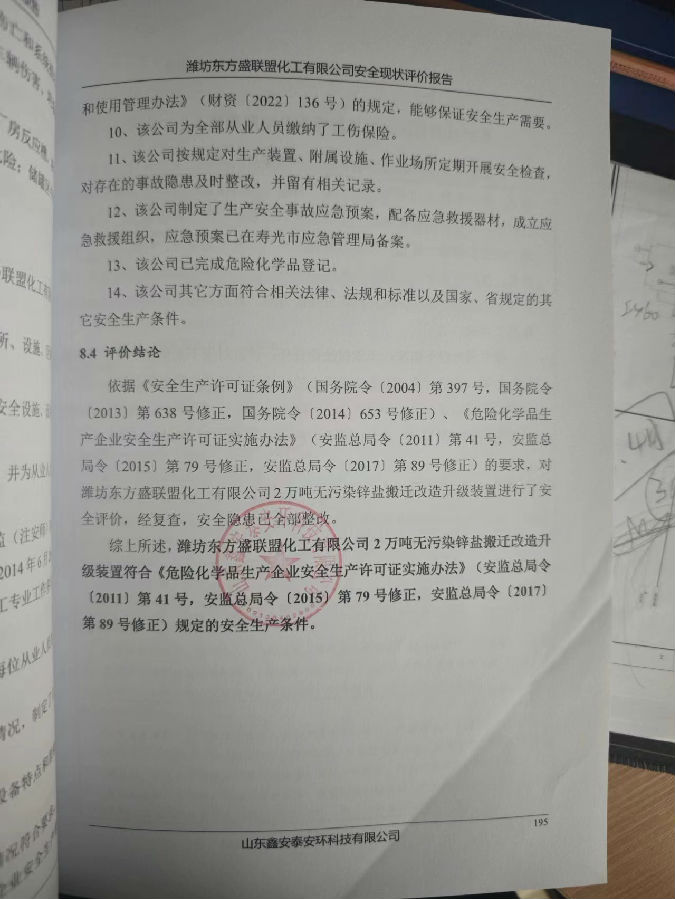 潍坊东方盛联盟化工有限公司安全现状评价报告
和使用管理办法》（财资〔2022〕136 号）的规定，能够保证安全生产需要。
10、该公司为全部从业人员缴纳了工伤保险。
11、该公司按规定对生产装置、附属设施、作业场所定期开展安全检查，
对存在的事故隐患及时整改，并留有相关记录。
12、该公司制定了生产安全事故应急预案，配备应急救援器材，成立应
急救援组织，应急预案已在寿光市应急管理局备案。
13、该公司已完成危险化学品登记。
14、该公司其它方面符合相关法律、法规和标准以及国家、省规定的其
它安全生产条件。
8.4 评价结论
依据《安全生产许可证条例》（国务院令〔2004〕第 397 号，国务院令
〔2013〕第 638 号修正，国务院令〔2014〕653 号修正）、《危险化学品生
产企业安全生产许可证实施办法》（安监总局令〔2011〕第 41 号，安监总
局令〔2015〕第 79 号修正，安监总局令〔2017〕第 89 号修正）的要求，对
潍坊东方盛联盟化工有限公司 2 万吨无污染锌盐搬迁改造升级装置进行了安
全评价，经复查，安全隐患已全部整改。
综上所述，潍坊东方盛联盟化工有限公司 2 万吨无污染锌盐搬迁改造升
级装置符合《危险化学品生产企业安全生产许可证实施办法》（安监总局令
〔2011〕第 41 号，安监总局令〔2015〕第 79 号修正，安监总局令〔2017〕
第 89 号修正）规定的安全生产条件。
195
山东鑫安泰安环科技有限公司